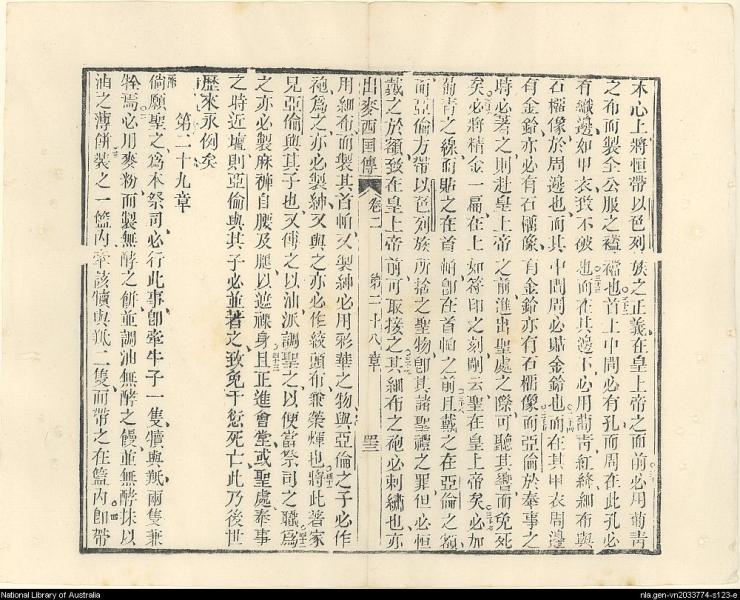 心上將恒帶以色列族之正義在皇上帝之面前必用葡青
之布而製全公服之褶也首上中間必有孔而周在此孔必
有織邊如甲衣致不破也而在其邊下必用葡青紅絲細布與
石榴像於周邊也而其中間周必貼金鈴也而在其甲衣周邊
有金鈴亦必有石榴像有金鈴亦有石榴像而亞倫於奉事之
時必著之則赴皇上帝之前進出聖處之際可聽其響而免死
矣必將精金一扁在上如篆印之刻剛云聖在皇上帝矣必加
葡青之線而貼之在首帕卽在首帕之前且戴之在亞倫之額
而亞倫方帶以色列族所捨之聖物卽其諸聖禮之罪但必恒
戴之於額致在皇上帝前可取接之其細布之袍必刺繡也亦
出麥西国傳 卷二 第二十八章 四三
用細布而製其首帕又製紳必用彩華之物與亞倫之子必作
袍爲之亦必製紳又與之亦必作紋頭布兼榮煇也將此著家
兄亞倫與其子也又傅之以油派調聖之以便當祭司之職爲
之亦必製麻褲自腰及腿以遮祼身且正進會堂或聖處奉事
之時近壇則亞倫與其子必並著之致免干愆死亡此乃後世
歷來永例矣
第二十九章
倘願聖之爲本祭司必行此事卽牽牛子一隻犢與羝兩隻兼
牷焉必用麥粉而製無酵之餅並調油無酵之饅並無酵抹以
油之薄餅裝之一籃內牽該犢與羝二隻而帶之在籃內卽帶
National Library of Australia
nla.gen-vn2033774-s123-e